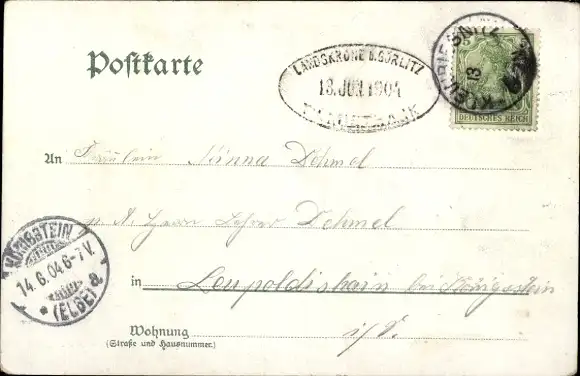 Postkarte
LANDSKRONE B. GÖRLITZ
13. JUN 1904
13
DEUTSCHES REICH
An Fräulein Minna Dehmel
p. A. Herrn Lehrer Dehmel
in Leupoldishain bei Königstein
i/S.
Wohnung
(Straße und Hausnummer)
KÖNIGSTEIN
14.6.04.6-7V.
* (ELBE)